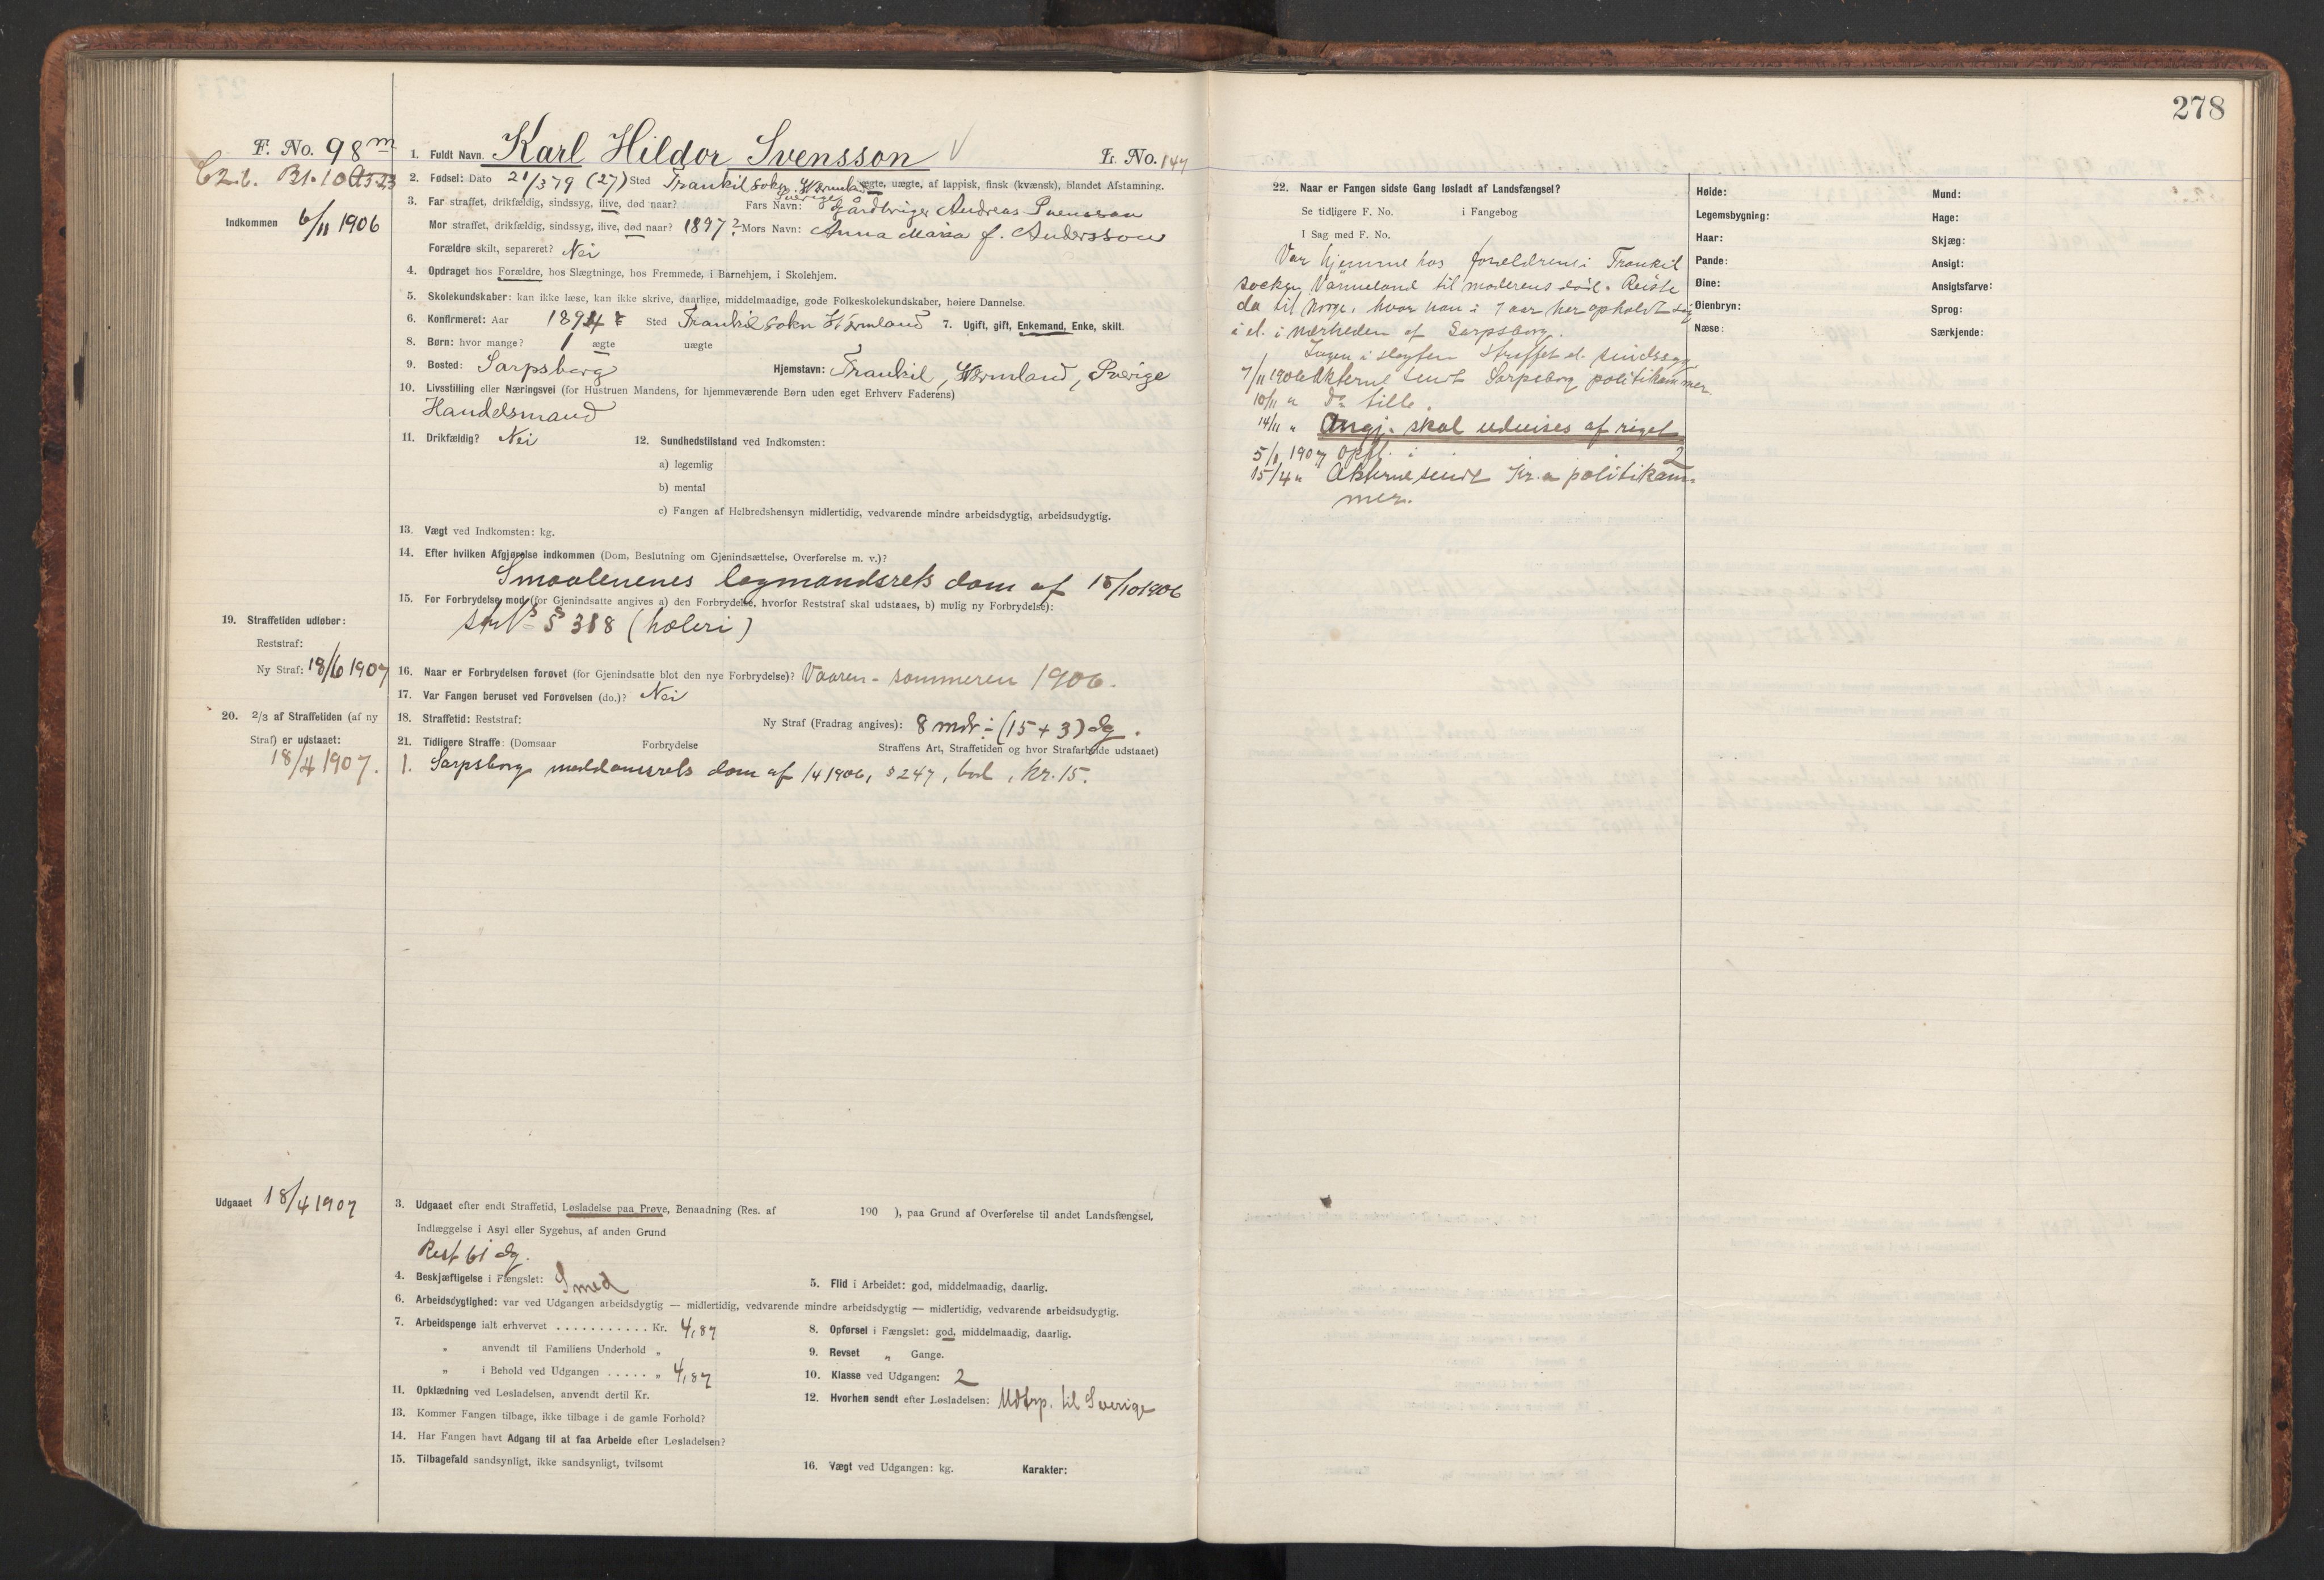 278
F. No. 98 m
1. Fuldt Navn. Karl Hildor Svensson
L. No. 147
Indkommen 6/11 1906
2. Fødsel: Dato 21/3 79 (27) Sted Trankil sokn Wermland Sverige ægte, uægte, af lappisk, finsk (kvænsk), blandet Afstamning.
3. Far straffet, drikfældig, sindssyg, ilive, død naar? Fars Navn: Gårdbruger Andreas Svensson
Mor straffet, drikfældig, sindssyg, ilive, død naar? 1897? Mors Navn: Anna Maria f. Andersson
Forældre skilt, separeret? Nei
4. Opdraget hos Forældre, hos Slægtninge, hos Fremmede, i Barnehjem, i Skolehjem.
5. Skolekundskaber: kan ikke læse, kan ikke skrive, daarlige, middelmaadige, gode Folkeskolekundskaber, høiere Dannelse.
6. Konfirmeret: Aar 1894? Sted Trankil sokn Wermland 7. Ugift, gift, Enkemand, Enke, skilt.
8. Børn: hvor mange? 1 ægte uægte
9. Bosted: Sarpsborg Hjemstavn: Trankil, Wermland, Sverige
10. Livsstilling eller Næringsvei (for Hustruen Mandens, for hjemmeværende Børn uden eget Erhverv Faderens)
Handelsmand
11. Drikfældig? Nei 12. Sundhedstilstand ved Indkomsten:
a) legemlig
b) mental
c) Fangen af Helbredshensyn midlertidig, vedvarende mindre arbeidsdygtig, arbeidsudygtig.
13. Vægt ved Indkomsten: kg.
14. Efter hvilken Afgjørelse indkommen (Dom, Beslutning om Gjenindsættelse, Overførelse m. v.)?
Smaalenenes lagmandsrets dom af 15/10 1906
15. For Forbrydelse mod (for Gjenindsatte angives a) den Forbrydelse, hvorfor Reststraf skal udstaaes, b) mulig ny Forbrydelse):
§ 318 (hæleri)
19. Straffetiden udløber:
Reststraf:
Ny Straf: 18/6 1907
16. Naar er Forbrydelsen forøvet (for Gjenindsatte blot den nye Forbrydelse)? Vaaren - sommeren 1906.
17. Var Fangen beruset ved Forøvelsen (do.)? Nei
20. 2/3 af Straffetiden (af ny Straf) er udstaaet:
18/4 1907.
18. Straffetid: Reststraf: Ny Straf (Fradrag angives): 8 mdr ÷ (15 + 3) dg.
21. Tidligere Straffe: (Domsaar Forbrydelse Straffens Art, Straffetiden og hvor Strafarbeide udstaaet)
1. Sarpsborg meddomsrets dom af 1/4 1906, § 247, bod, kr. 15.
Udgaaet 18/4 1907
3. Udgaaet efter endt Straffetid, Løsladelse paa Prøve, Benaadning (Res. af 190 ), paa Grund af Overførelse til andet Landsfængsel,
Indlæggelse i Asyl eller Sygehus, af anden Grund
Rest 61 dg.
4. Beskjæftigelse i Fængslet: Smed
5. Flid i Arbeidet: god, middelmaadig, daarlig.
6. Arbeidsdygtighed: var ved Udgangen arbeidsdygtig — midlertidig, vedvarende mindre arbeidsdygtig — midlertidig, vedvarende arbeidsudygtig.
7. Arbeidspenge ialt erhvervet . . . . . . . . . . . Kr. 4,87
8. Opførsel i Fængslet: god, middelmaadig, daarlig.
„ anvendt til Familiens Underhold „
9. Revset „ Gange.
„ i Behold ved Udgangen . . . . . „ 4,87
10. Klasse ved Udgangen: 2
11. Opklædning ved Løsladelsen, anvendt dertil Kr.
12. Hvorhen sendt efter Løsladelsen: Udtrp. til Sverige
13. Kommer Fangen tilbage, ikke tilbage i de gamle Forhold?
14. Har Fangen havt Adgang til at faa Arbeide efter Løsladelsen?
15. Tilbagefald sandsynligt, ikke sandsynligt, tvilsomt
16. Vægt ved Udgangen: kg. Karakter:
22. Naar er Fangen sidste Gang løsladt af Landsfængsel?
Se tidligere F. No. i Fangebog
I Sag med F. No.
Var hjemme hos forældrene i Trankil
socken Värmeland til moderens død. Reiste
da til Norge, hvor han i 7 aar her opholdt sig
i el. i nærheden af Sarpsborg.
Ingen i slægten straffet el. sindssyg
7/11 1906 Akterne sendt Sarpsborg politikammer
10/11 " do tilb.
14/11 " Angj. skal udvises af riget
5/1 1907 Opfl. i 2
15/4 " Akterne sendt Kr.a politikam-
mer.
Høide: Mund:
Legemsbygning: Hage:
Haar: Skjæg:
Pande: Ansigt:
Øine: Ansigtsfarve:
Øienbryn: Sprog:
Næse: Særkjende: